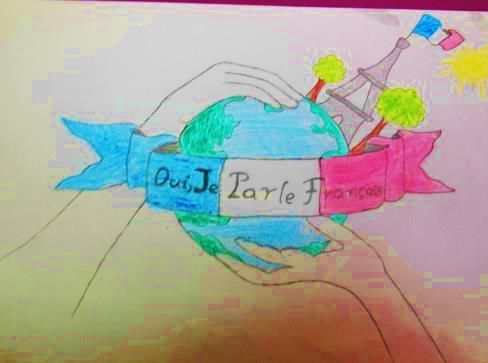 Oui, Je Parle Français